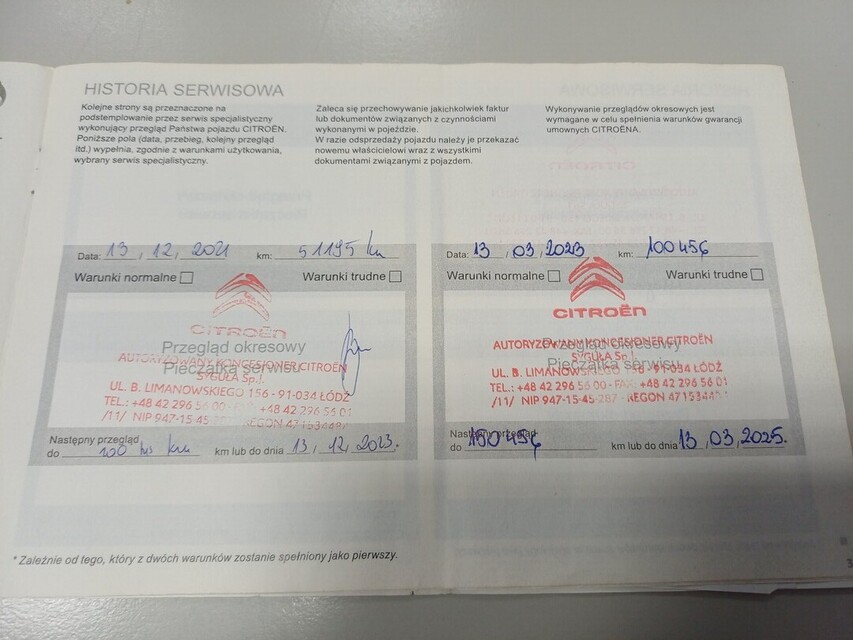 HISTORIA SERWISOWA
Kolejne strony są przeznaczone na
podstemplowanie przez serwis specjalistyczny
wykonujący przegląd Państwa pojazdu CITROËN.
Poniższe pola (data, przebieg, kolejny przegląd
itd.) wypełnia, zgodnie z warunkami użytkowania,
wybrany serwis specjalistyczny.
Zaleca się przechowywanie jakichkolwiek faktur
lub dokumentów związanych z czynnościami
wykonanymi w pojeździe.
W razie odsprzedaży pojazdu należy je przekazać
nowemu właścicielowi wraz z wszystkimi
dokumentami związanymi z pojazdem.
Wykonywanie przeglądów okresowych jest
wymagane w celu spełnienia warunków gwarancji
umownych CITROËNA.
Data: 13, 12, 2021 km: 51195 km
Warunki normalne Warunki trudne
CITROËN
Przegląd okresowy
Pieczątka serwisu
AUTORYZOWANY KONCESJONER CITROËN
SYGUŁA Sp.J.
UL. B. LIMANOWSKIEGO 156 - 91-034 ŁÓDŹ
TEL.: +48 42 296 56 00 - FAX: +48 42 296 56 01
/11/ NIP 947-15-45 REGON
Następny przegląd
do 100 tys km km lub do dnia 13, 12, 2023.
Data: 13, 03, 2023 km: 100456
Warunki normalne Warunki trudne
CITROËN
Przegląd okresowy
Pieczątka serwisu
AUTORYZOWANY KONCESJONER CITROËN
SYGUŁA Sp.J.
UL. B. LIMANOWSKIEGO 156 - 91-034 ŁÓDŹ
TEL.: +48 42 296 56 00 - FAX: +48 42 296 56 01
/11/ NIP 947-15-45-287 - REGON
Następny przegląd
do 150456 km lub do dnia 13, 03, 2025.
* Zależnie od tego, który z dwóch warunków zostanie spełniony jako pierwszy.
3